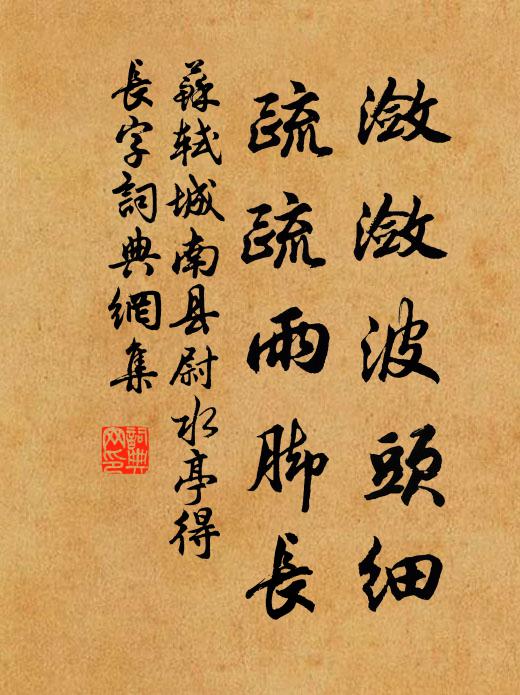 潋潋波頭細
疏疏雨脚長
蘇軾城南县尉水亭得
長字詞典網集
詞典
网印